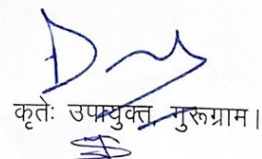 कृतेः उपायुक्त, गुरूग्राम।